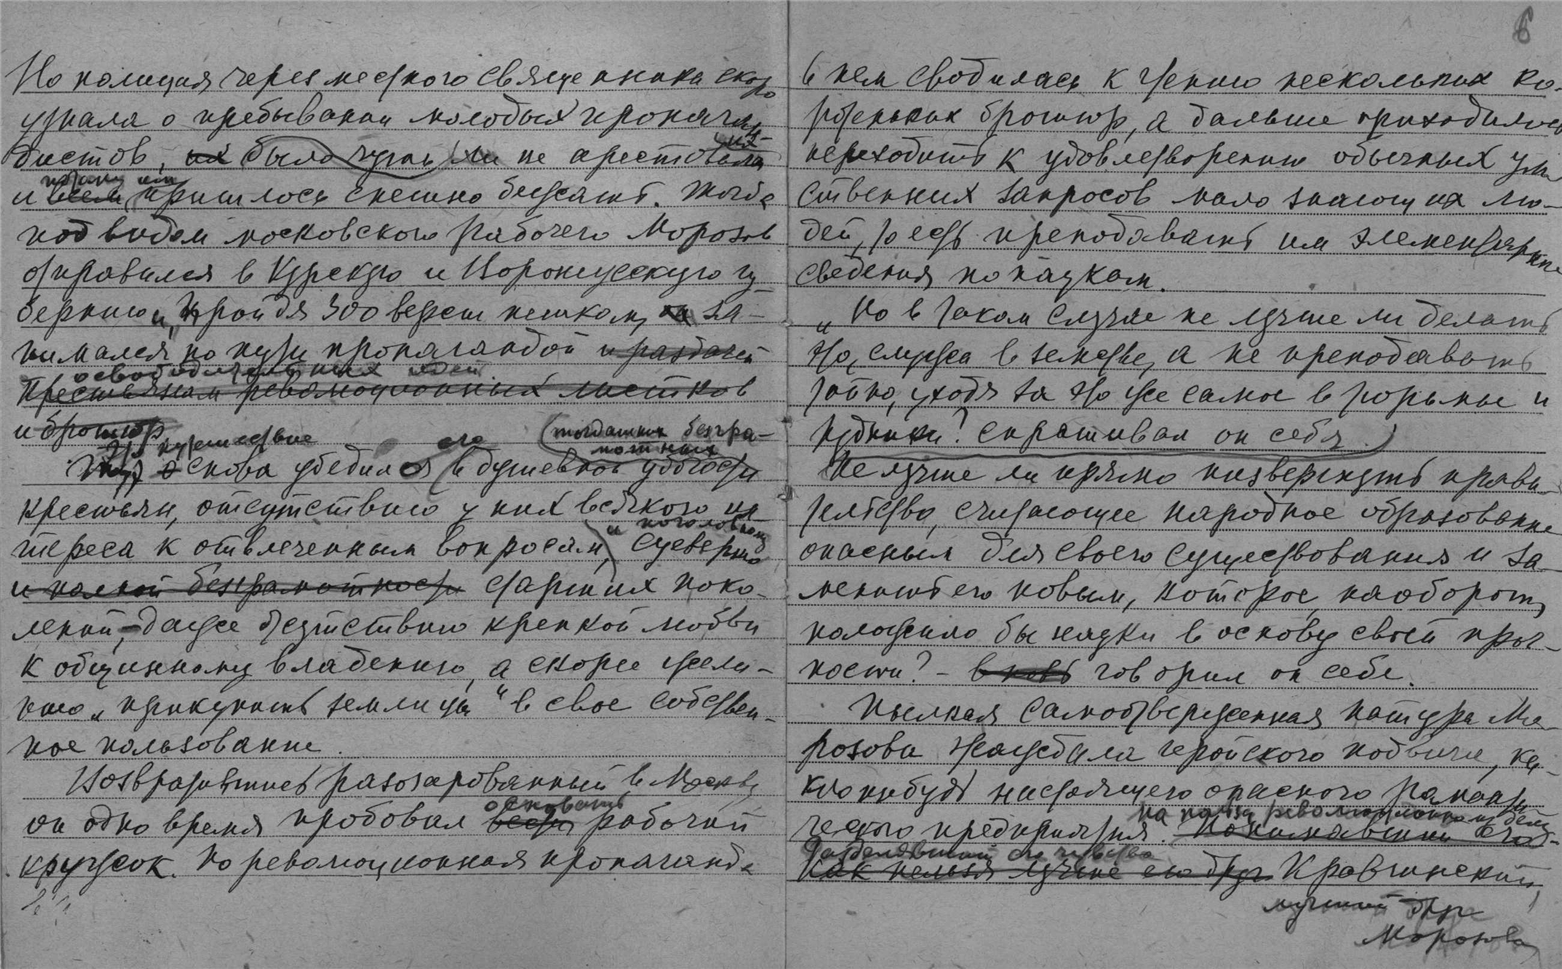 Но полиция через местного священника скоро
узнала о пребывании молодых пропаган-
дистов, их было чуть ли не арестовала
их
и всем пришлось спешно бежать. Тогда
под видом московского рабочего Морозов
отправился в Курскую и Воронежскую гу-
бернию и, пройдя 300 верст пешком, за-
нимался по пути пропагандой и раздачей
освободительных идей
крестьянам революционных листков
и брошюр
Это путешествие
снова убедило его в душевной убогости
(тогдашних безгра-
мотных
крестьян, отсутствию у них всякого ин-
тереса к отвлеченным вопросам, суеверию
и поголовной
и полной безграмотности старших поко-
лений, даже отсутствию крепкой любви
к общинному владению, а скорее жела-
нию „прикупить землицы" в свое собствен-
ное пользование.
Возвратившись разочарованный в Москву
он одно время пробовал вести рабочий
основать
кружок. Но революционная пропаганда
6
в нем сводилась к чтению нескольких ко-
ротеньких брошюр, а дальше приходилось
переходить к удовлетворению обычных ум-
ственных запросов мало знающих лю-
дей, то есть преподавать им элементарные
сведения по наукам.
„Но в таком случае не лучше ли делать
то, служа в земстве, а не преподавать
тайно, уходя за то же самое в тюрьмы и
рудники? спрашивал он себя.
Не лучше ли прямо низвергнуть прави-
тельство, считающее народное образование
опасным для своего существования и за-
менить его новым, которое, наоборот,
положило бы науки в основу своей проч-
ности? – вновь говорил он себе.
Пылкая самоотверженная натура Мо-
розова жаждала геройского подвига, ка-
кого нибудь настоящего опасного романти-
ческого предприятия. Понимавший его
на пользу революционного дела
разделявший его чувства
как нельзя лучше его друг Кравчинский,
лучший друг
Морозова